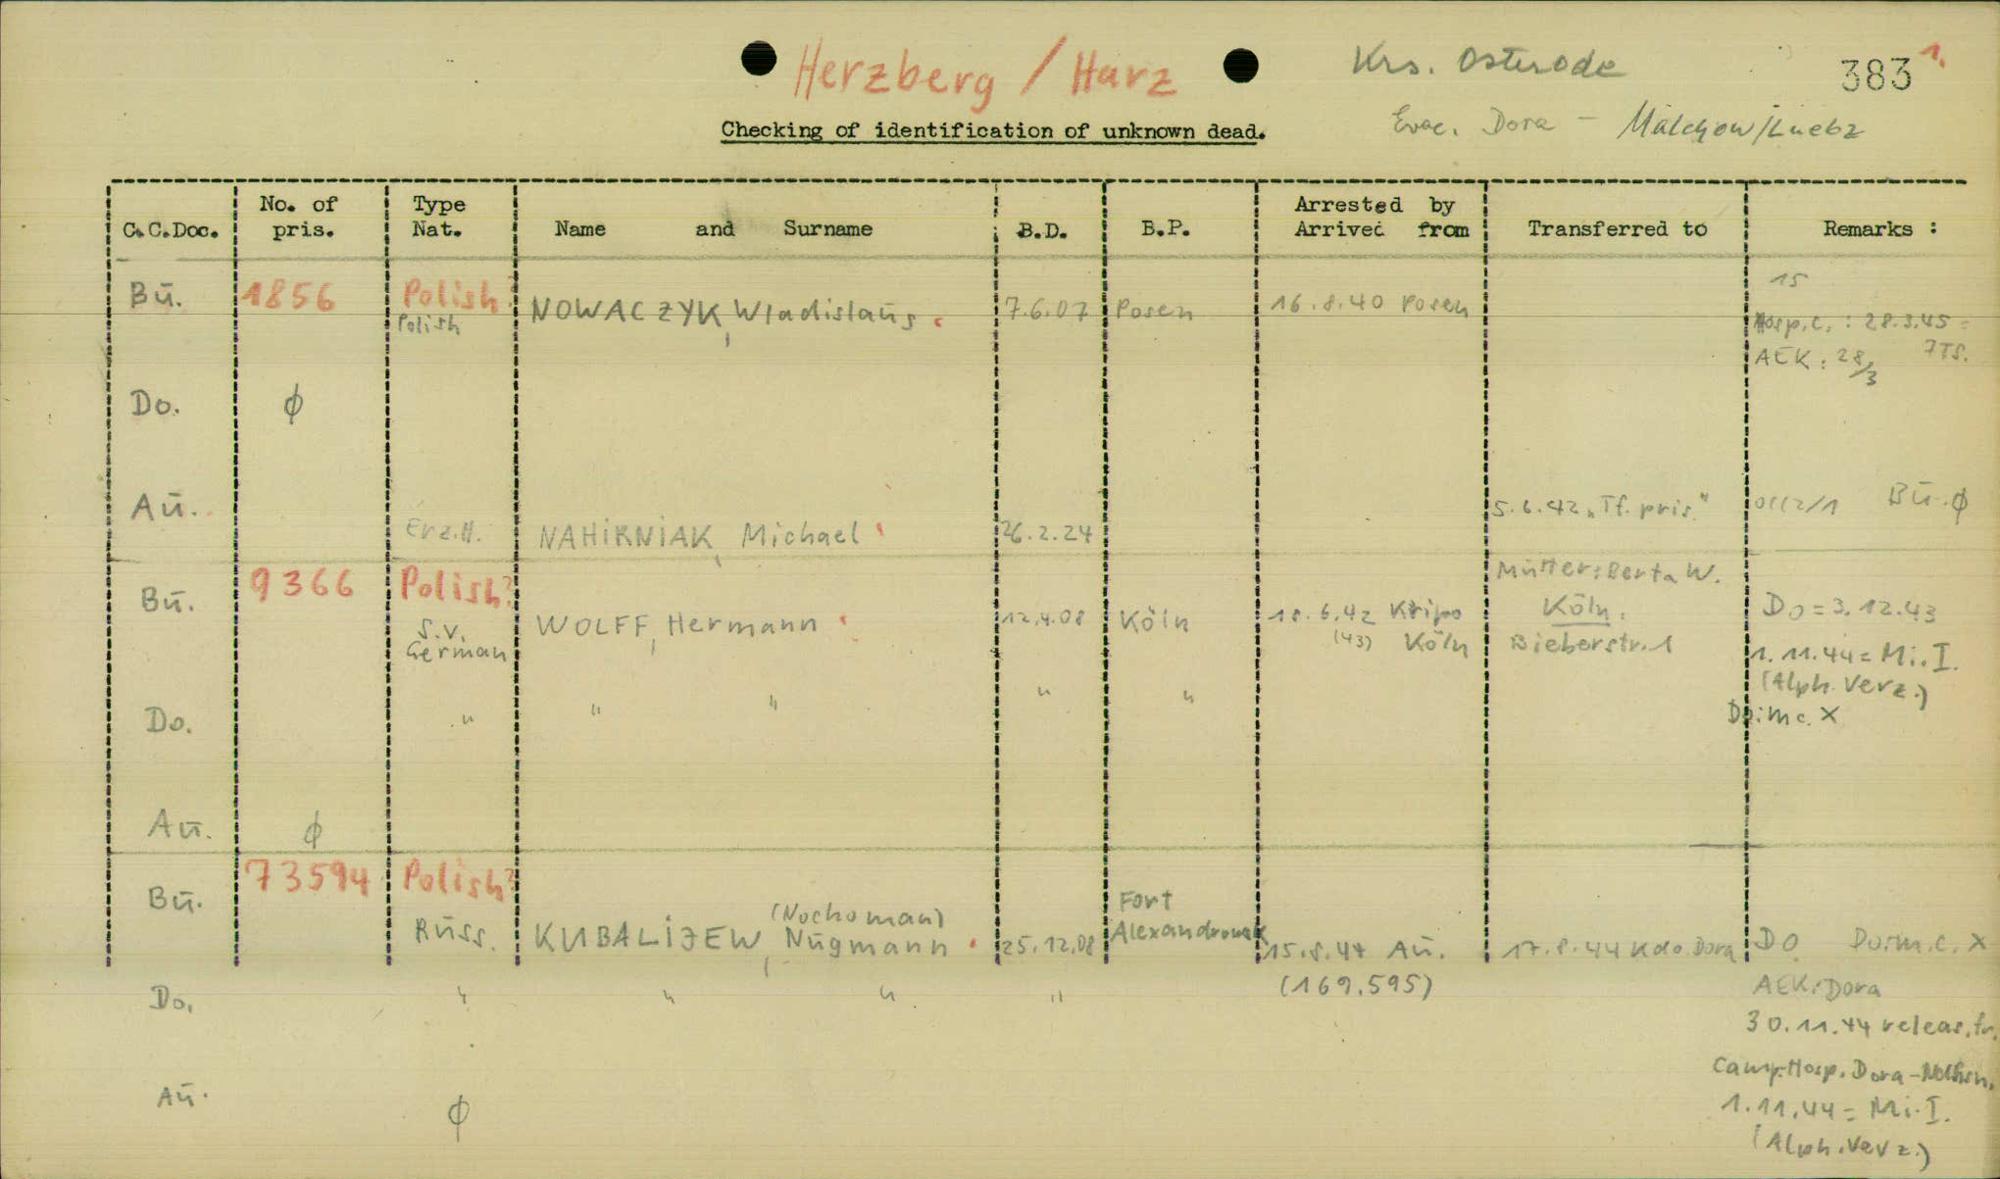 Herzberg / Harz Krs. Osterode 383 1.
Checking of identification of unknown dead. Evac. Dora - Malchow/Luebz
C.C.Doc. No. of pris. Type Nat. Name and Surname B.D. B.P. Arrested by Arrived from Transferred to Remarks :
15
Bū. 1856 Polish NOWACZYK, Wladislaūs 7.6.07 Posen 16.8.40 Posen
Polish Hosp.c. : 28.3.45 =
AEK : 28/3 7TS.
Do. ϕ
Aū. 5.6.42 „Tf. pris." Bū. ϕ
Erz.H. NAHIRNIAK, Michael 26.2.24
9366 Polish? Mūtter: Berta W.
Bū. WOLFF, Hermann 12.4.08 Köln 18.6.42 Kripo Köln. Do = 3.12.43
S.V. German (43) Köln Bieberstr. 1 1.11.44 = Mi. I.
(Alph. Verz.)
Do. " " " " " Do: m c. X
Aū. ϕ
73594 Polish?
Bū. (Nochoman) Fort
Rūss. KUBALIJEW, Nūgmann 25.12.08 Alexandrowsk 15.8.44 Aū. 17.8.44 Kdo. Dora DO Do: m. c. X
(169.595) AEK: Dora
Do. " " " "
30.11.44 releas. fr.
Camp-Hosp. Dora -
Aū. ϕ 1.11.44 = Mi. I.
(Alph. Verz.)